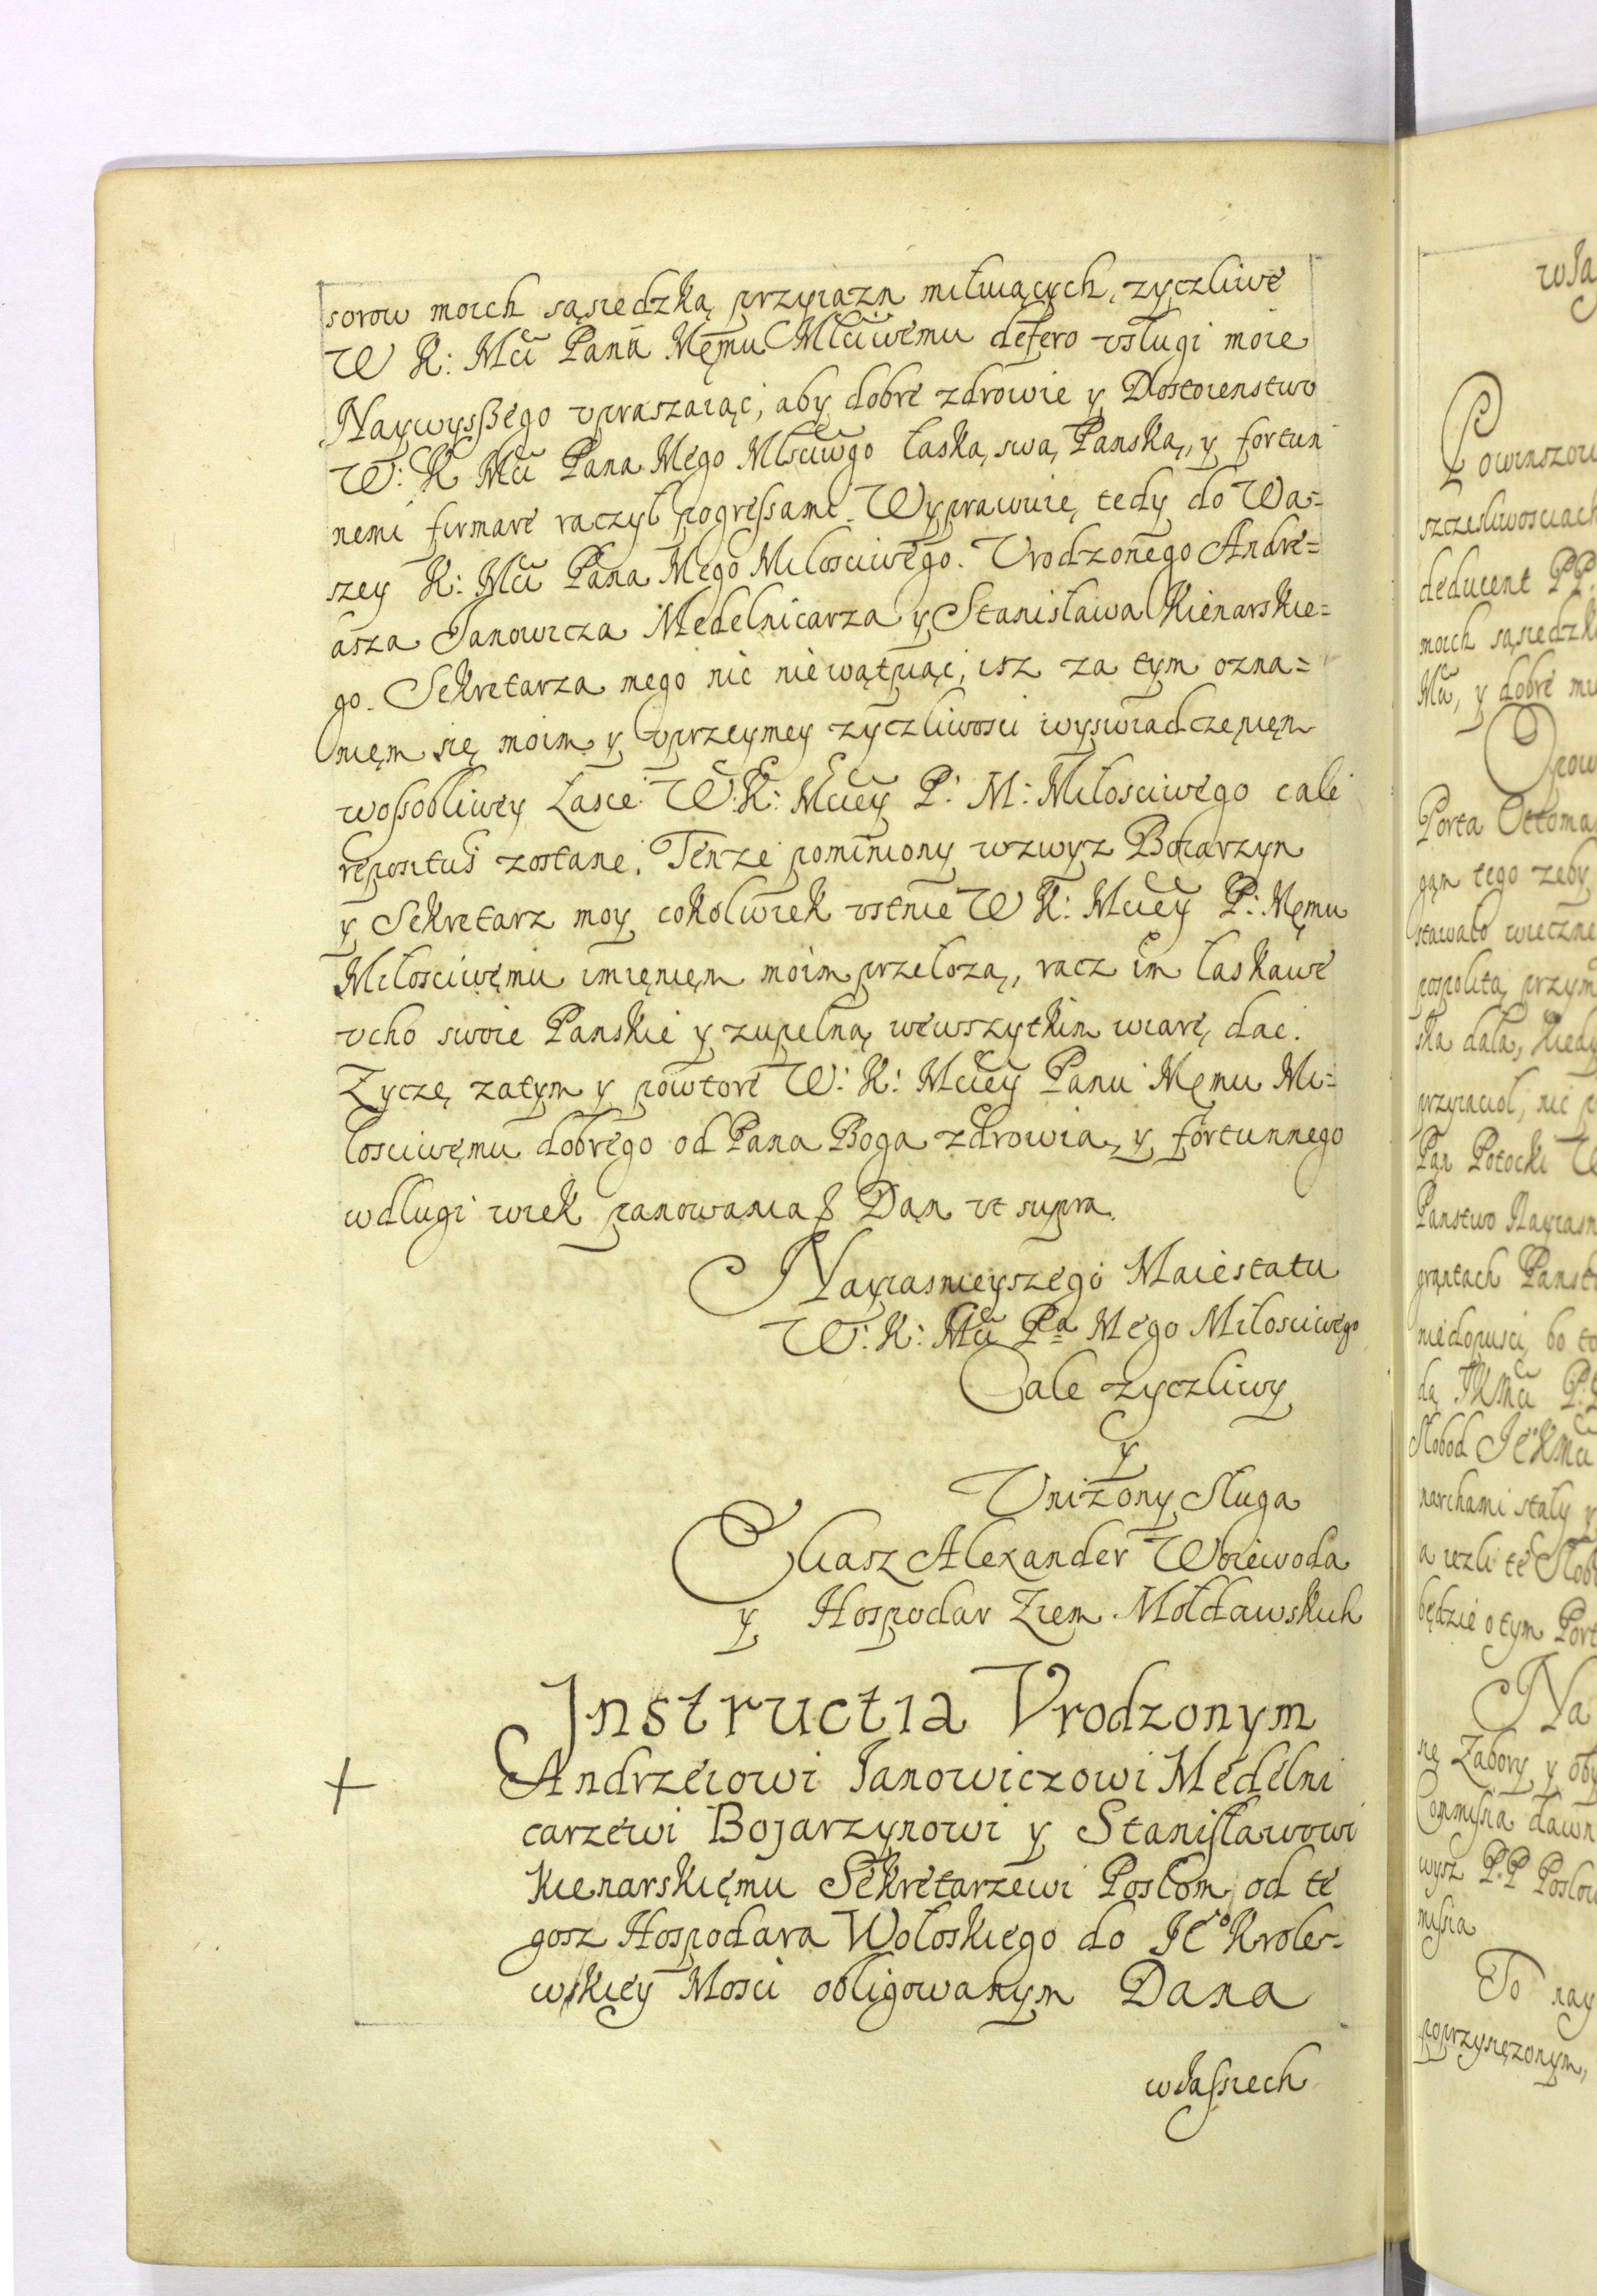 sorow moich sąsiedzką przyiazn miłuiących, zyczliwe
W K: Mći Panu Męmu Młćiwemu defero vsługi moie
Naywyszßego vpraszaiąc, aby dobre zdrowie y Dostoienstwo
W: K Mći Pana Mego Młśćiwgo łaską swą Panską, y fortun
nemi firmare raczył pogressami. Wyprawuię tedy do Wa=
szey K: Mći Pana Mego Milosciwego. Vrodzonego Andre=
asza Janowicza Medelnicarza y Stanisława Kienarskie=
go. Sekretarza mego nic niewątpiąc, isz za tym ozna=
nięm się moim y vprzeymey zyczliwosci wyswiadczenięm
wossobliwey Łasce W: K: Mćiey P: M: Miłosciwego cale
repositus zostanę. Tenze pominiony wzwyz Boiarzyn
y Sekretarz moy cokolwiek vstnie W K: Mćiey P: Męmu
Miłosciwęmu imięnięm moim przełozą, racz im łaskawe
vcho swoie Panskie y zupełną wewszytkim wiarę dac.
Zyczę zatym y powtore W: K: Mćiey Panu Męmu Mi=
łosciwęmu dobrego od Pana Boga zdrowia, y fortunnego
wdługi wiek panowania Dan vt supra.
Nayiasnieyszego Maiestatu
W: K: Mći Pa Mego Miłosciwego
Cale zyczliwy
y
Vnizony Sluga
Eliasz Alexander Woiewoda
y Hospodar Ziem Mołdawskich
Instructia Vrodzonym
Andrzeiowi Janowiczowi Medelni
carzewi Bojarzynowi y Stanisławowi
Kienarskięmu Sekretarzewi Posłom od te
gosz Hospodara Wołoskiego do Jeo Krole=
wskiey Mosci obligowanym Dana
wJassiech
wJa
Powinszow
szczesliwosciach
deducent PP.
moich sąsiedzk
Mći, y dobre mi
Porta Ottoma
gąm tego zeby
stawało wieczne
pospolitą przym
ska dała, kiedy
przyiaciol, nic p
Pąn Potocki W
Panstwo Nayiasn
grąntach Panst
niedopusci, bo to
dą JKMći P.
Słobod Jeo KMći
narchami stały y
a iezli te Słob
będzie o tym Port
Na
się Zabory y oby
Commissia dawn
wysz P.P Posłow
missia
To nay
poprzysięzonym,